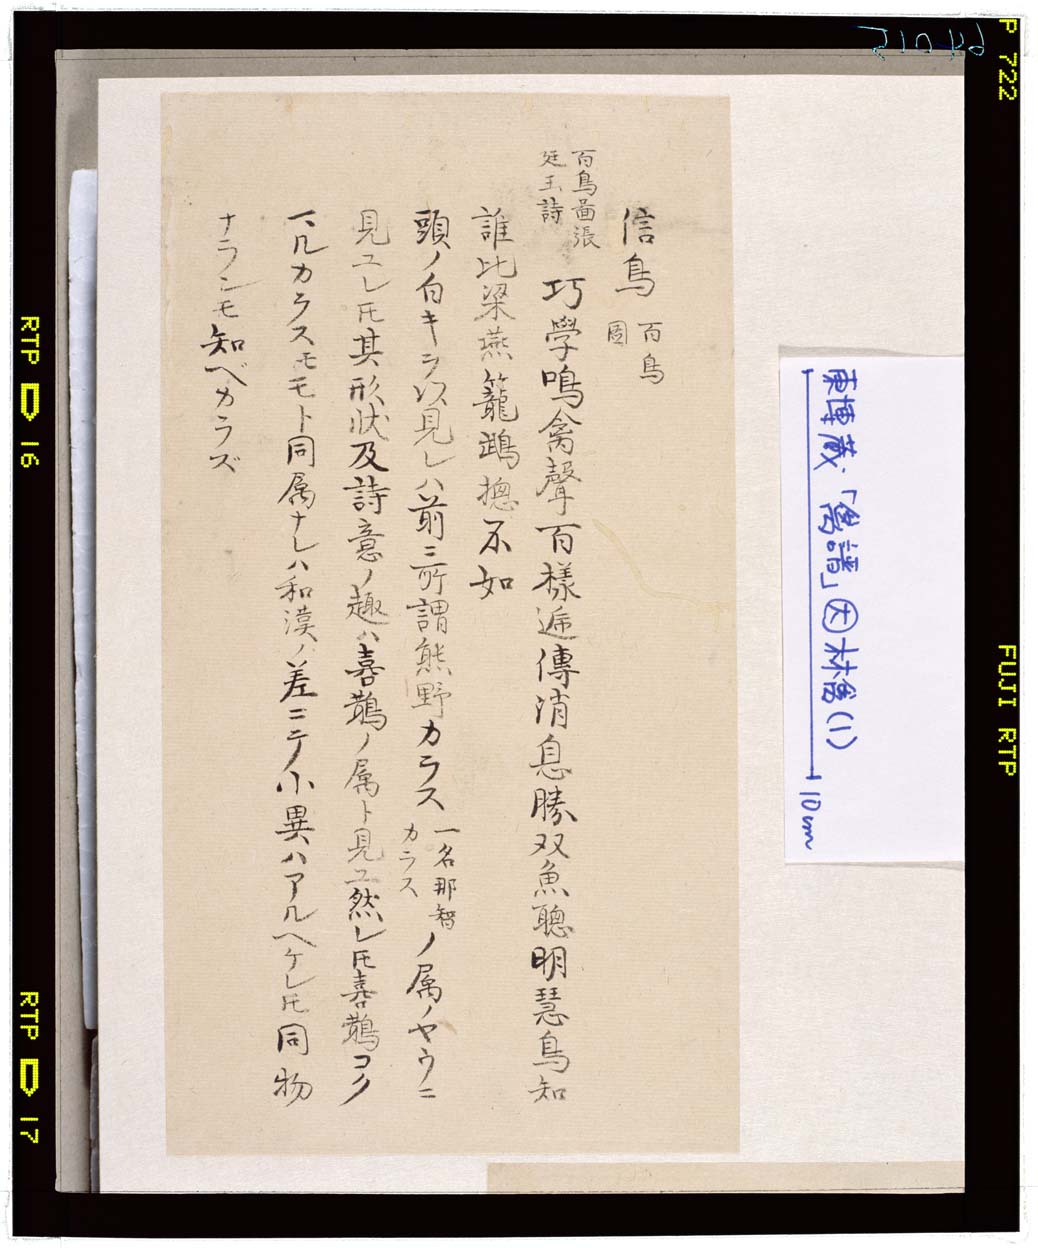 信鳥 百鳥
圖
百鳥圖張
廷玉詩
巧學鳴禽聲百樣遞傳消息勝双魚聰明慧鳥知
誰比梁燕籠鴟摠不如
頭ノ白キヲ以見レハ前ニ所謂熊野カラス 一名那智
カラス ノ属ノヤウニ
見ユレ𪜈其形状及詩意ノ趣ハ喜鵲ノ属ト見ユ然レ𪜈喜鵲コク
マルカラスモモト同属ナレハ和漢ノ差ニテ小異ハアルヘケレ𪜈同物
ナランモ知ベカラズ
東博蔵「禽譜」因林禽(1)
10cm
21046
P 722
FUJI RTP
RTP 16
RTP 17